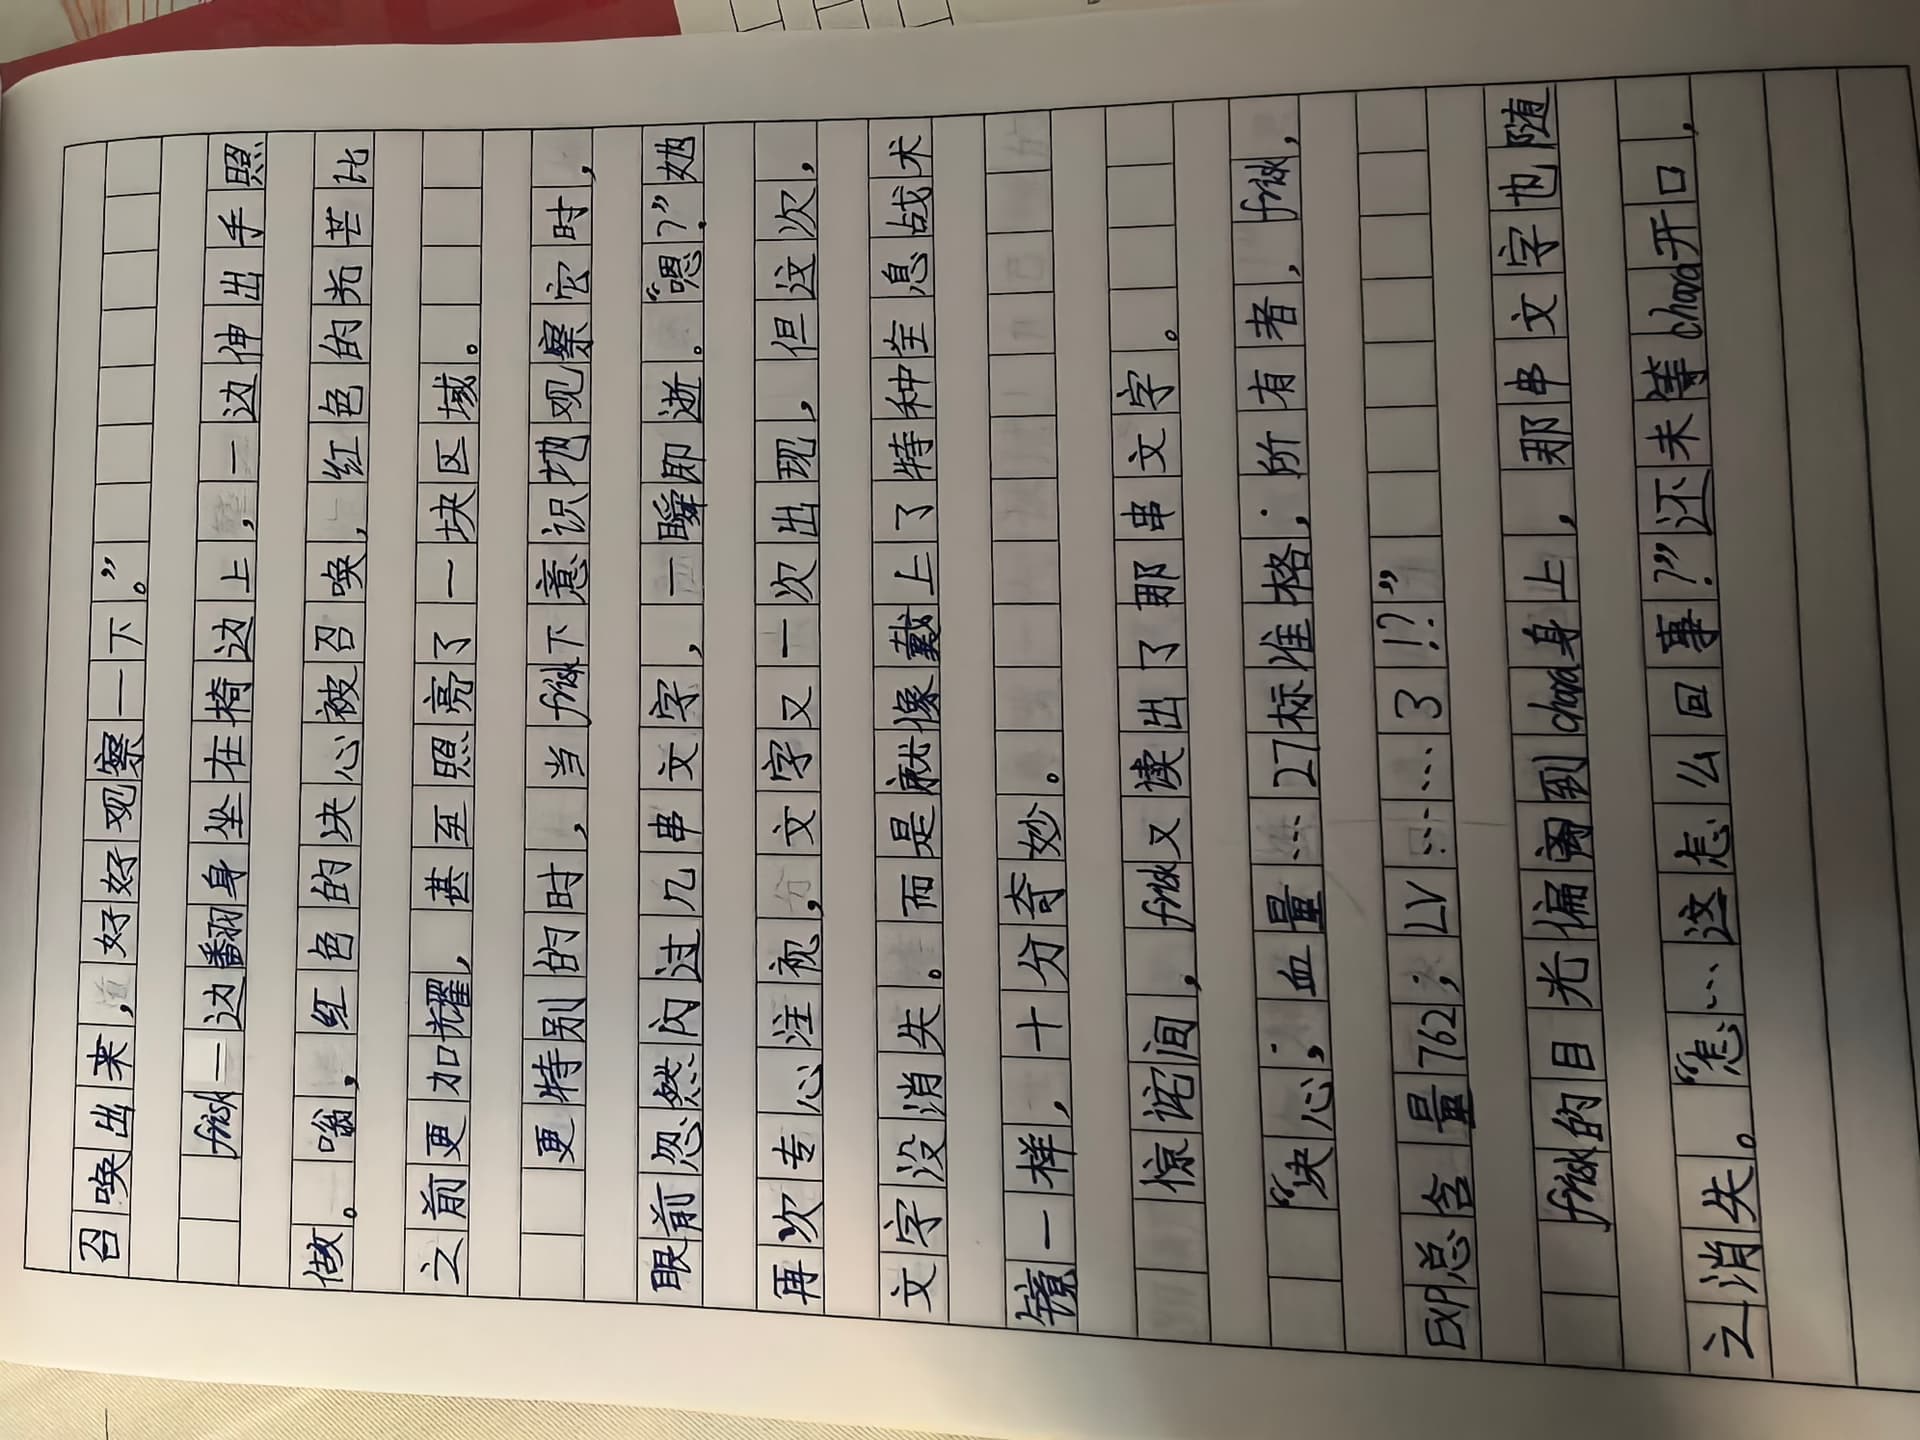 召唤出来，好好观察一下。”
frisk一边翻身坐在椅边上，一边伸出手照
做。嗡，红色的决心被召唤，红色的光芒比
之前更加耀，甚至照亮了一块区域。
更特别的时，当frisk下意识地观察它时，
眼前忽然闪过几串文字，一瞬即逝。“嗯？”她
再次专心注视，文字又一次出现，但这次，
文字没消失。而是就像戴上了特种全息战术
镜一样，十分奇妙。
惊诧间，frisk又读出了那串文字。
“决心；血量…27标准格；所有者，frisk，
EXP总含量762；LV……3！？”
frisk的目光偏离到chara身上，那串文字也随
之消失。“怎…这怎么回事？”还未等chara开口，